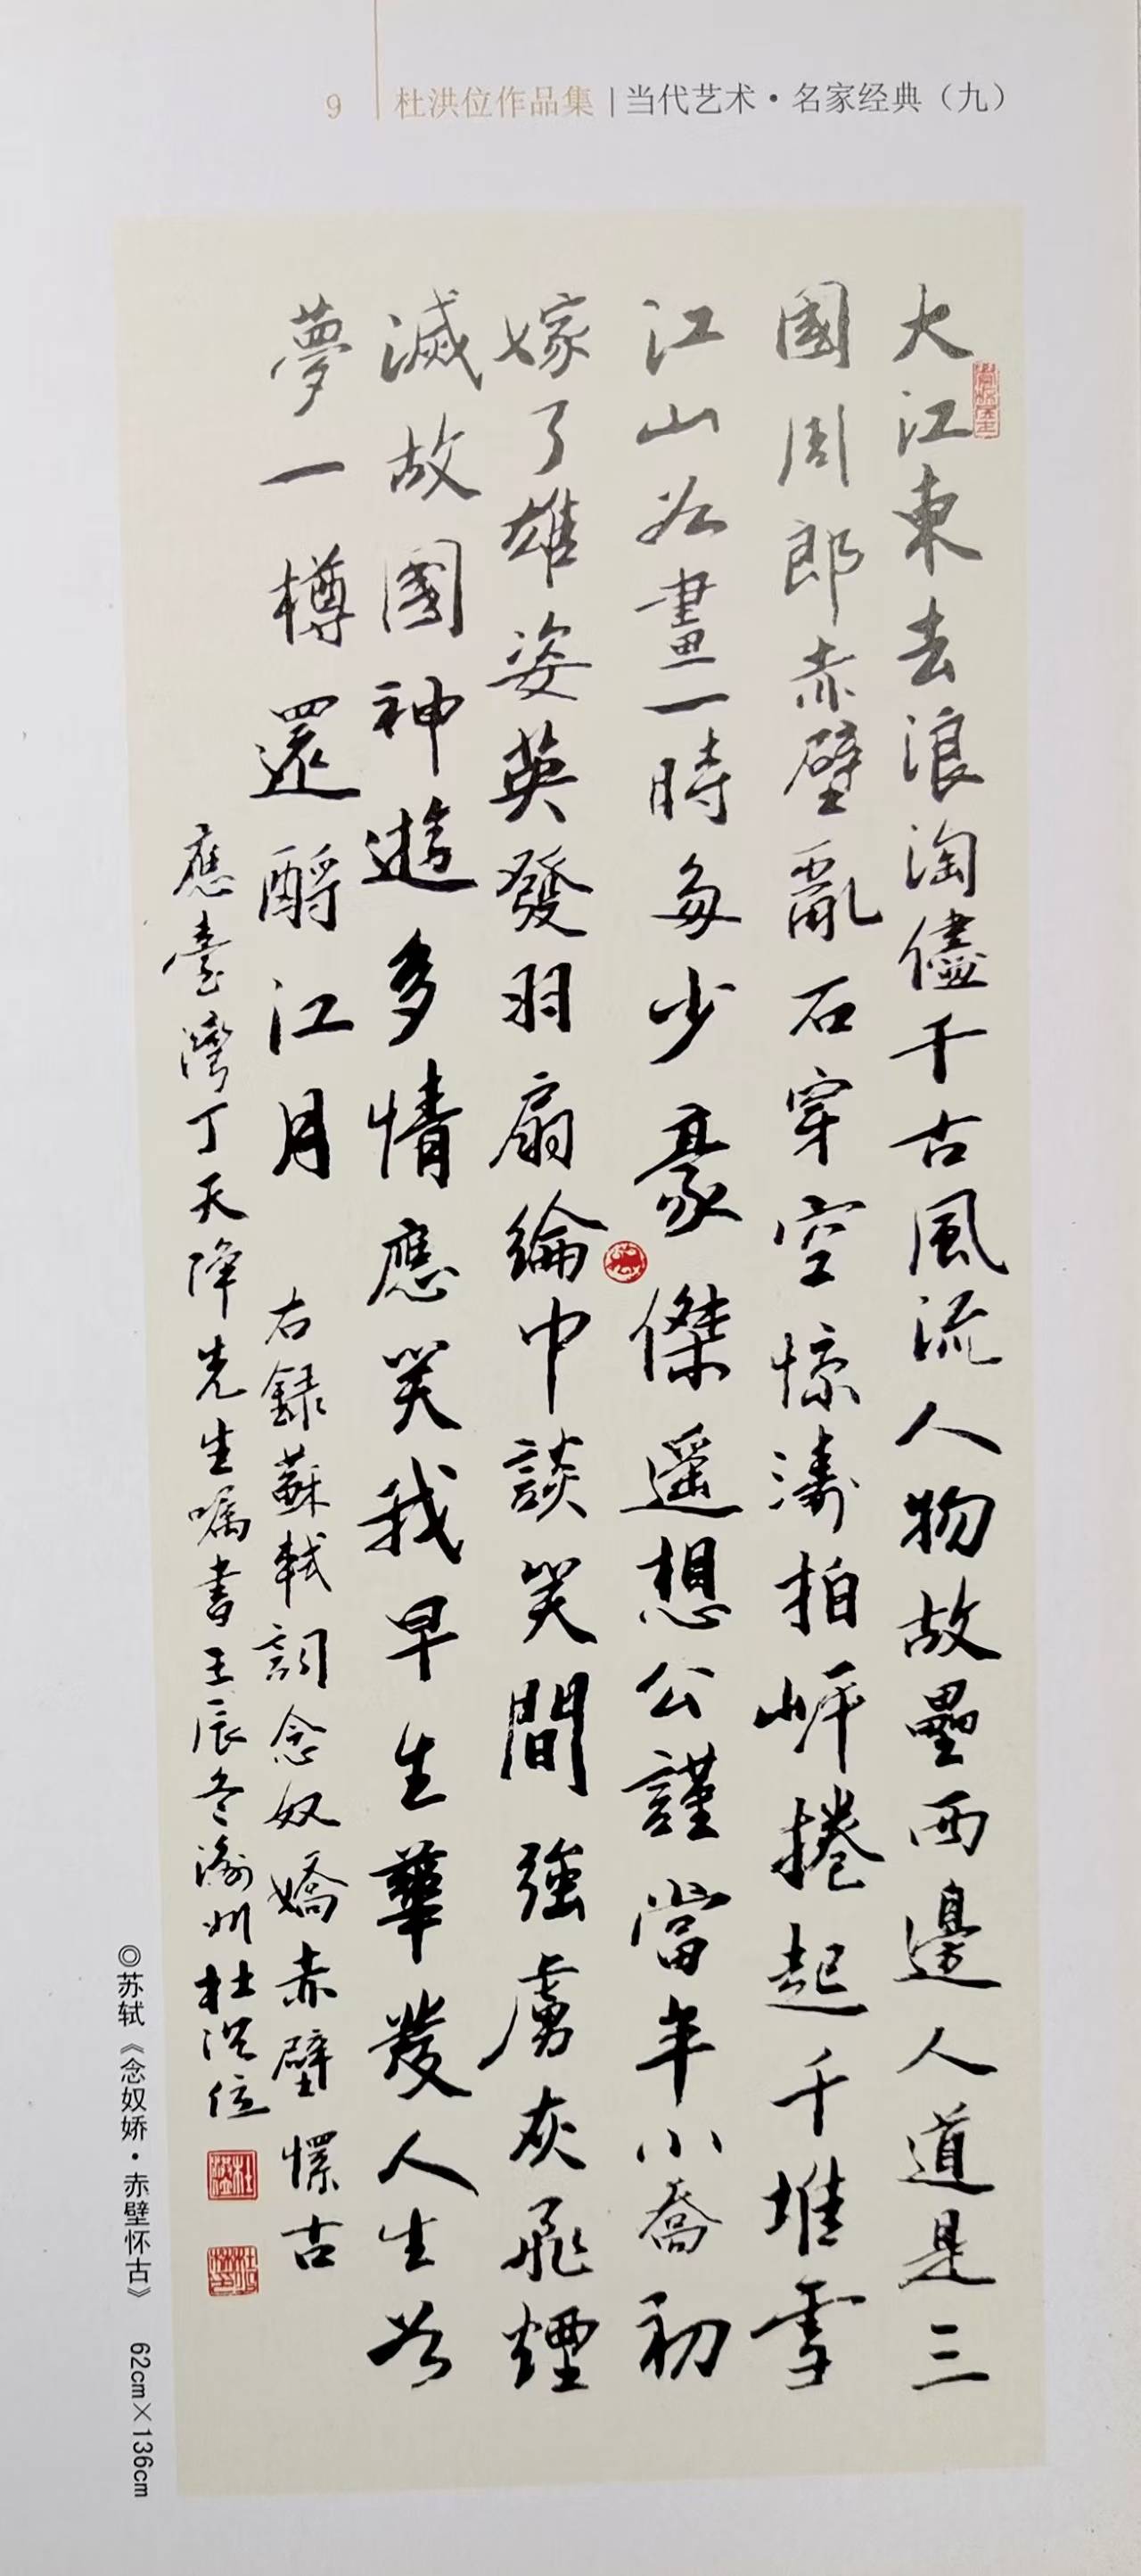 9 杜洪位作品集 | 当代艺术·名家经典（九）
大江東去浪淘儘千古風流人物故壘西邊人道是三
國周郎赤壁亂石穿空惊濤拍岸捲起千堆雪
江山如畫一時多少豪傑遥想公謹當年小喬初
嫁了雄姿英發羽扇綸巾談笑間強虜灰飛煙
滅故國神遊多情應笑我早生華發人生如
夢一樽還酹江月
右録蘇軾詞念奴嬌赤壁懷古
應臺灣丁天降先生嘱書壬辰冬渝州杜洪位
◎苏轼《念奴娇·赤壁怀古》 62cm×136cm